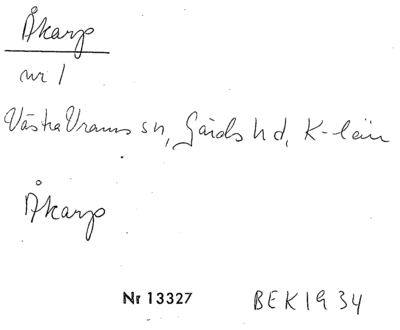 Åkarp
nr 1
Västra Vrams sn, Gärds hd, K-län
Åkarp
Nr 13327 BEK 1934